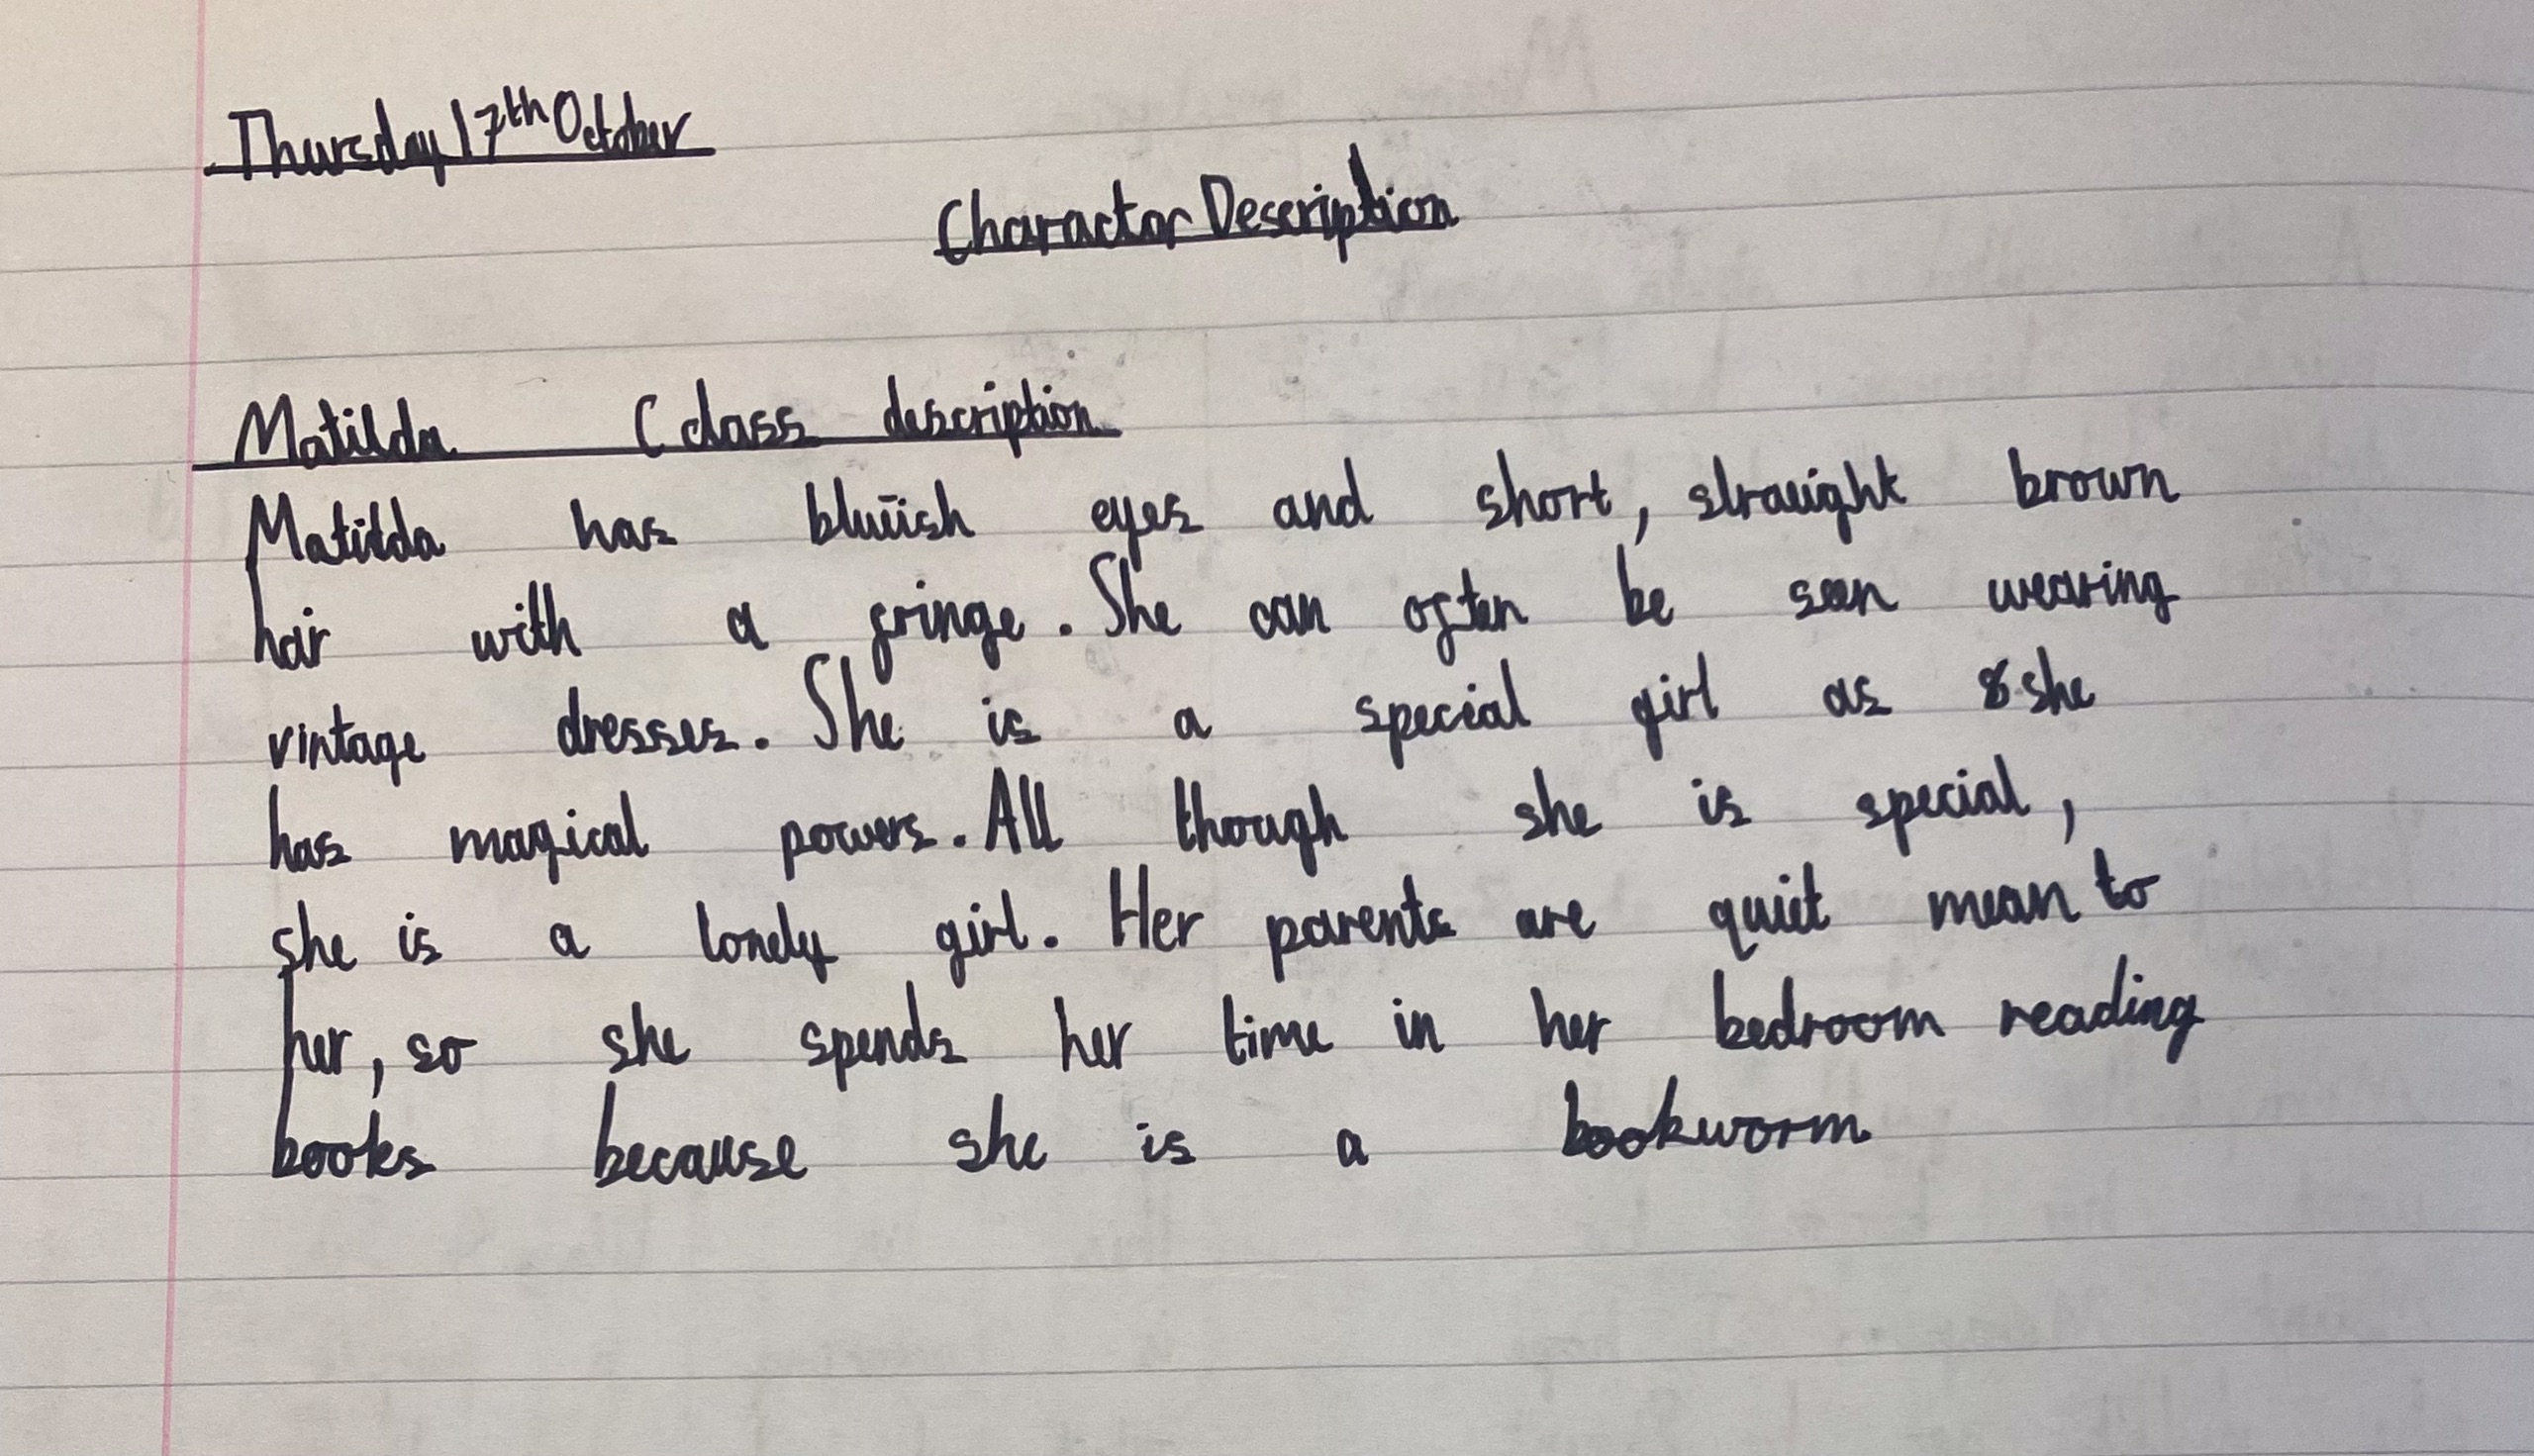 Thursday 17th October
Charactor Description
Matilda (class description
Matilda has bluiish eyes and short, straight brown
hair with a fringe. She can often be seen wearing
vintage dresses. She is a special girl as she
has magical powers. All though she is special,
she is a lonely girl. Her parents are quiet mean to
her, so she spends her time in her bedroom reading
books because she is a bookworm